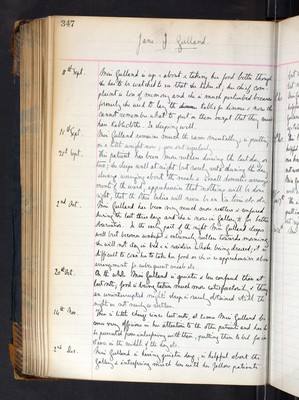 347
Jane I. Gulland.
8th Sept. Miss Gulland is up & about & taking her food better though
she has to be watched to see that she takes it, her chief com-
plaint is loss of memory and she is much perturbed because
formerly she used to lay the dinner tables for dinners & now she
cannot remember what to put on them except that they must
have tablecloths. Is sleeping well.
Miss Gulland remains much the same mentally, is putting
on a little weight now, goes out regularly.
This patient has been more restless during the last day or
two, she sleeps well at night but rarely rests during the day,
always worrying about the
ment of the ward, apprehensive that nothing will be done
right, that the other ladies will never
2nd Oct. Miss Gulland has been very much more restless & confused
during the last three days and she is now in Gallery 2 for better
observation. In the early part of the night Miss Gulland sleeps
well but becomes wakeful & restless towards morning,
she will not stay in bed & resists
difficult to get her to take her food as she is apprehensive about
arrangements for subsequent meals etc.
20th Oct. On the whole Miss Gulland is quieter & less confused than at
last note, food is being taken much more satisfactorily, & though
an uninterrupted night's sleep is rarely obtained still the
nights are not nearly so restless.
14th Nov. There is little change since last note, at times Miss Gulland be-
comes very officious in her attention to the other patients and has to
be prevented from interfering with them, putting them to bed for in-
stance in the middle of the day, etc.
2nd Dec. Miss Gulland is having quieter days, is helpful about the
Gallery & interfering much less with her fellow patients.